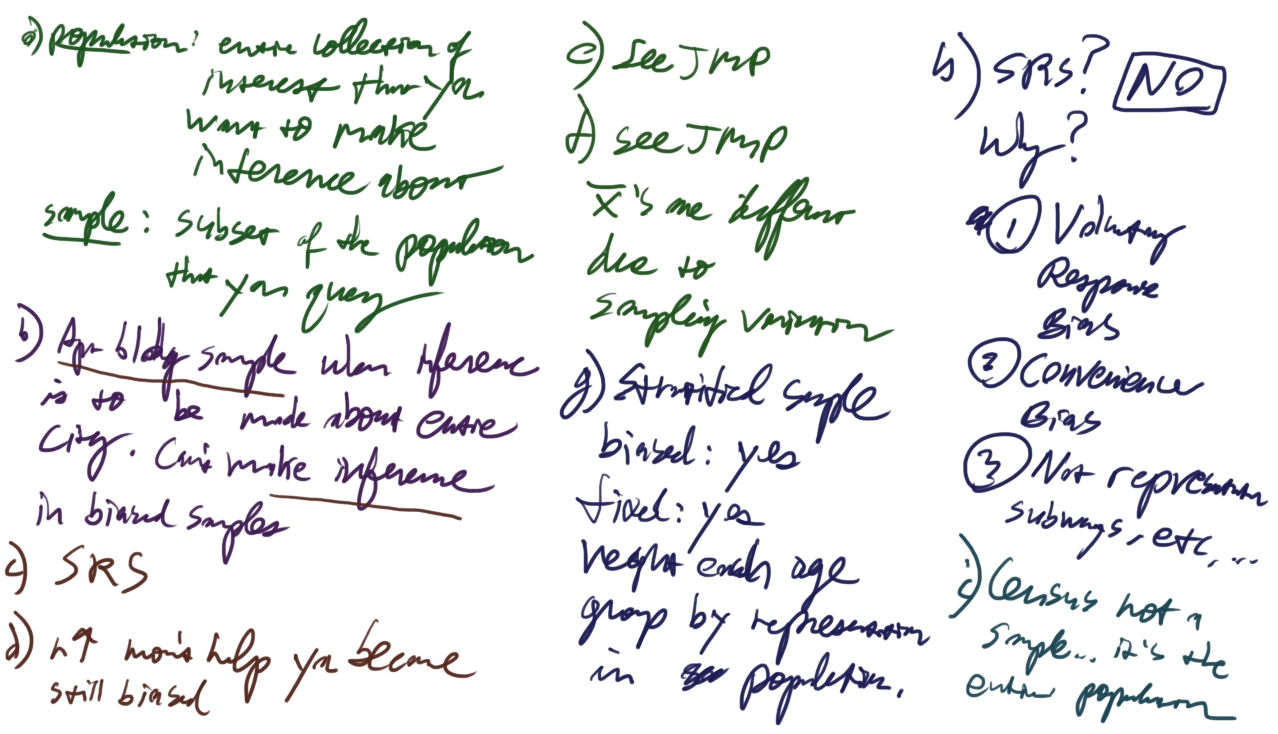 a) population: entire collection of
interest that you
want to make
inference about
sample: subset of the population
that you query
b) Apt bldg sample when inference
is to be made about entire
city. Can't make inference
in biased samples
c) SRS
d) n↑ won't help you because
still biased
e) see JMP
f) see JMP
x̄'s are different
due to
sampling variation
g) Stratified sample
biased: yes
fixed: yes
weight each age
group by representation
in population.
h) SRS? NO
Why?
① Voluntary
Response
Bias
② Convenience
Bias
③ Not representative
subways, etc, ...
i) Census not a
sample... it's the
entire population